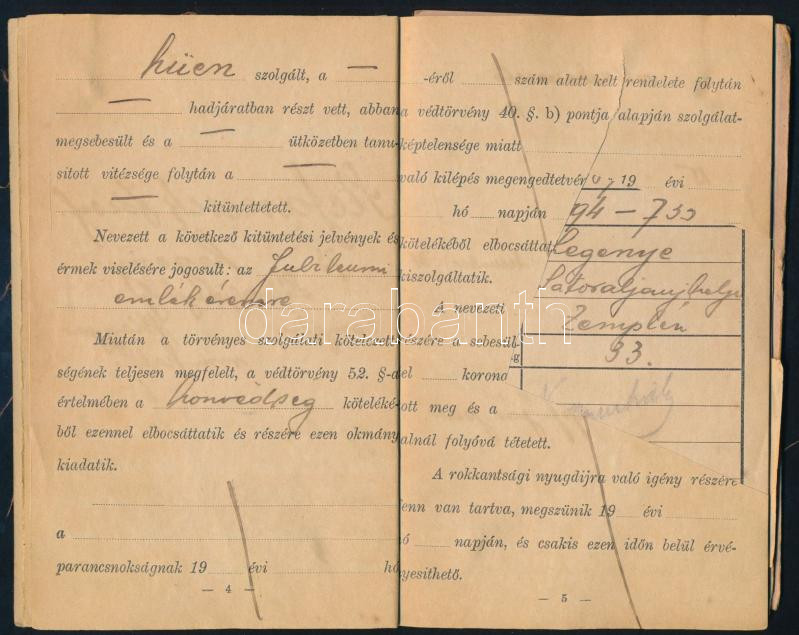 hűen szolgált, a —
— hadjáratban részt vett, abban
megsebesült és a — ütközetben tanu-
sitott vitézsége folytán a —
— kitüntettetett.
Nevezett a következő kitüntetési jelvények és
érmek viselésére jogosult: az Jubileumi
emlékéremre
Miután a törvényes szolgálati kötelezett-
ségének teljesen megfelelt, a védtörvény 52. §-a
értelmében a honvédség köteléké-
ből ezennel elbocsáttatik és részére ezen okmány
kiadatik.
a
parancsnokságnak 19 évi hó
— 4 —
-éről szám alatt kelt rendelete folytán
a védtörvény 40. §. b) pontja alapján szolgálat-
képtelensége miatt
való kilépés megengedtetvén 19 évi
hó napján 94 – 755
kötelékéből elbocsáttat Legenye
kiszolgáltatik. Sátoraljaujhely
A nevezett Zemplén
részére a sebesül 33.
el korona
ott meg és a
alnál folyóvá tétetett.
A rokkantsági nyugdijra való igény részére
fenn van tartva, megszünik 19 évi
hó napján, és csakis ezen időn belül érvé-
nyesithető.
— 5 —
darabanth